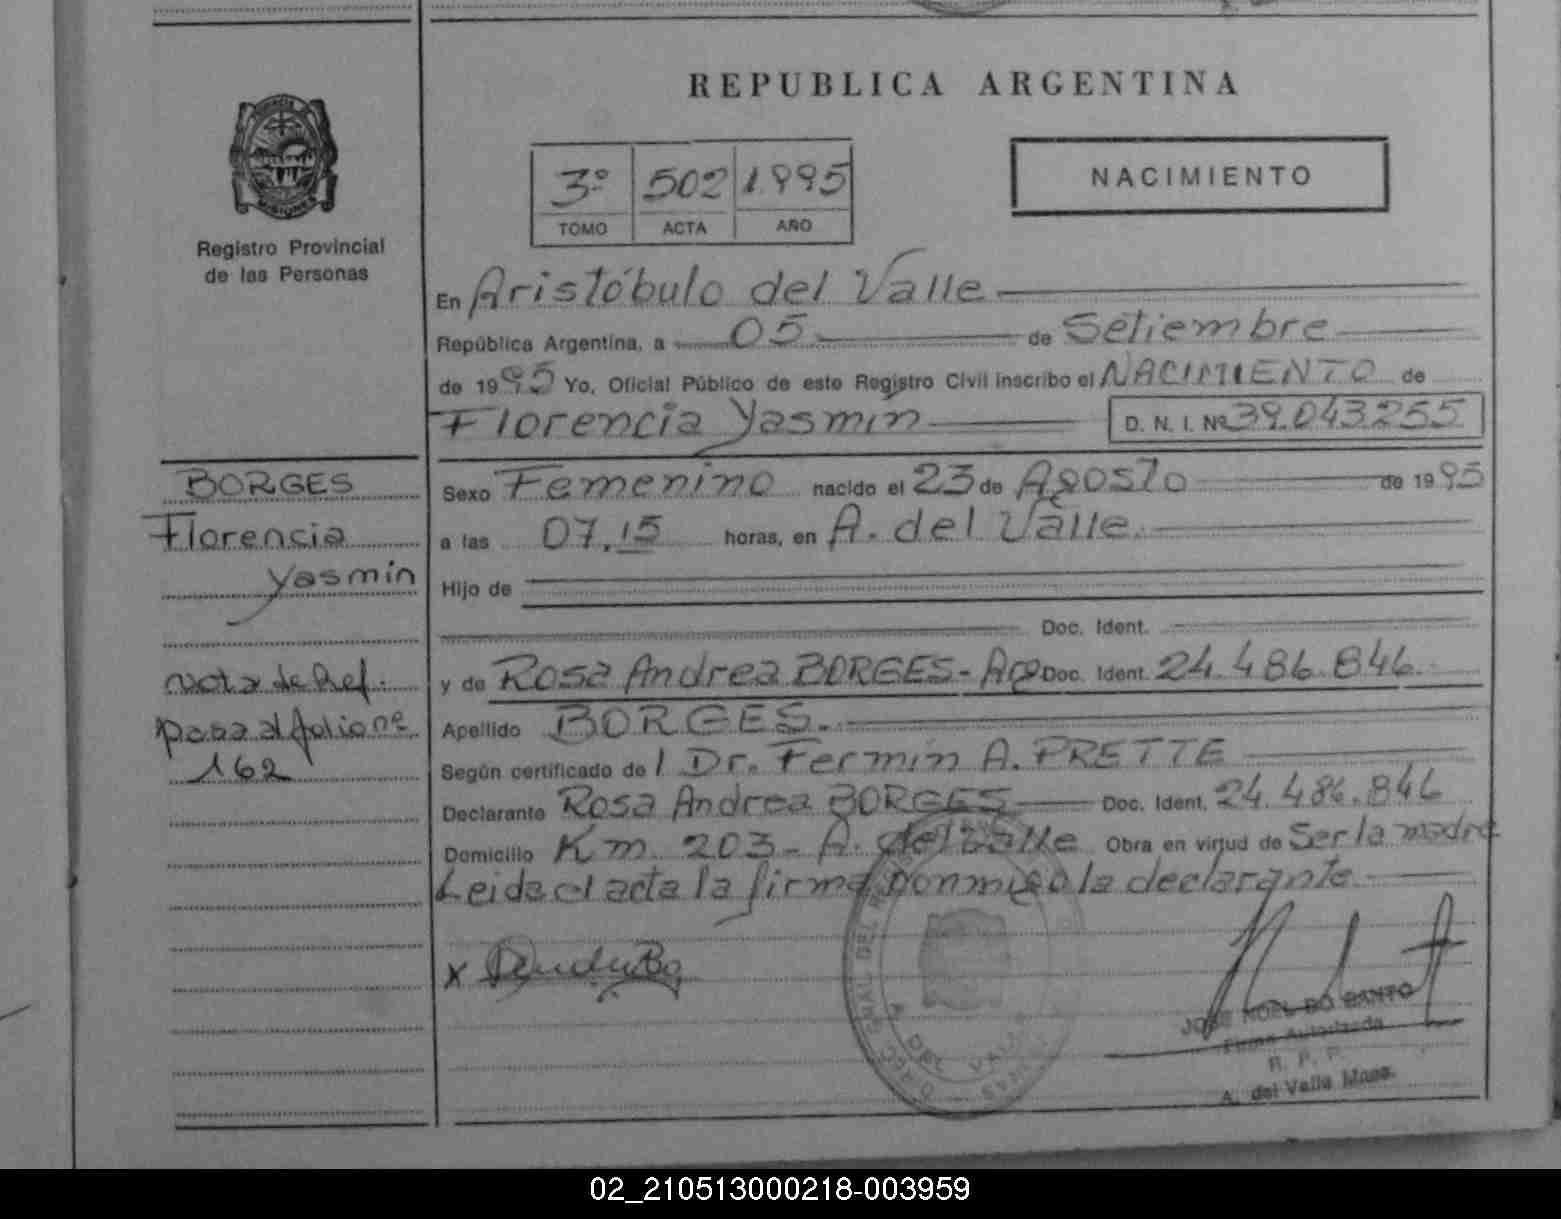 REPUBLICA ARGENTINA
MISIONES
Registro Provincial
de las Personas
3º 502 1995
TOMO ACTA AÑO
NACIMIENTO
En Aristóbulo del Valle
República Argentina, a 05 de Setiembre
de 1995 Yo, Oficial Público de este Registro Civil inscribo el NACIMIENTO de
Florencia Yasmín D. N. I. Nº 39.043.255
BORGES
Florencia
Yasmín
Nota de Ref.
pasa al folio nº
162
Sexo Femenino nacido el 23 de Agosto de 1995
a las 07,15 horas, en A. del Valle.
Hijo de
Doc. Ident.
y de Rosa Andrea BORGES - Arg Doc. Ident. 24.486.846.
Apellido BORGES.
Según certificado de l Dr. Fermín A. PRETTE
Declarante Rosa Andrea BORGES Doc. Ident. 24.486.846
Domicilio Km. 203 - A. del Valle Obra en virtud de Ser la madre
Leida el acta la firma conmigo la declarante
x
JOSE NOEL DO SANTO
Firma Autorizada
R. P. P.
A. del Valle Mnes.
02_210513000218-003959